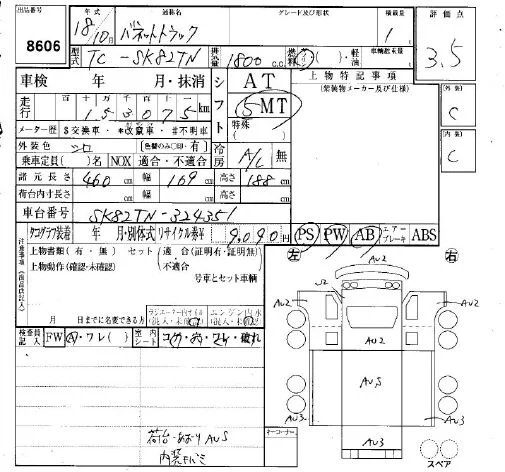 出品番号
8606
年式
18/10月
通称名
バネットトラック
グレード及び形状
積載量
1
評価点
3.5
型式
TC-SK82TN
排気量
1800 C.C
燃料
ガソリン・軽油
車輌総重量
車検 年 月・抹消
シフト
AT
5 MT
特殊
上物特記事項
(架装物メーカー及び仕様)
外装
C
内装
C
走行
百 十 万 千 百 十 一
153075 km
メーター歴 $交換車・*改竄車・#不明車
外装色 シロ
色替のみ○印・有
冷房
A/C 無
乗車定員( )名 NOX 適合・不適合
諸元長さ 460 cm 幅 169 cm 高さ 188 cm
荷台内寸長さ cm 幅 cm 高さ cm
車台番号 SK82TN-324351
PS PW AB エアーブレーキ ABS
タコグラフ装着 年 月・別体式 リサイクル券¥ 9,090円
左
右
注意事項
上物書類(有・無) セット 適合(証明有・証明無)
上物動作(確認・未確認) 不適合
号車とセット車輌
月 日までに名変できる方
検査員記入
FW
A・ワレ( )
室内シート
コゲ・穴・ワレ・破れ
荷台・あおり AUS
オーナーコーナー
S2
AU2
AU2
AU2
AUS
AU3
AU3
AU3
スペア